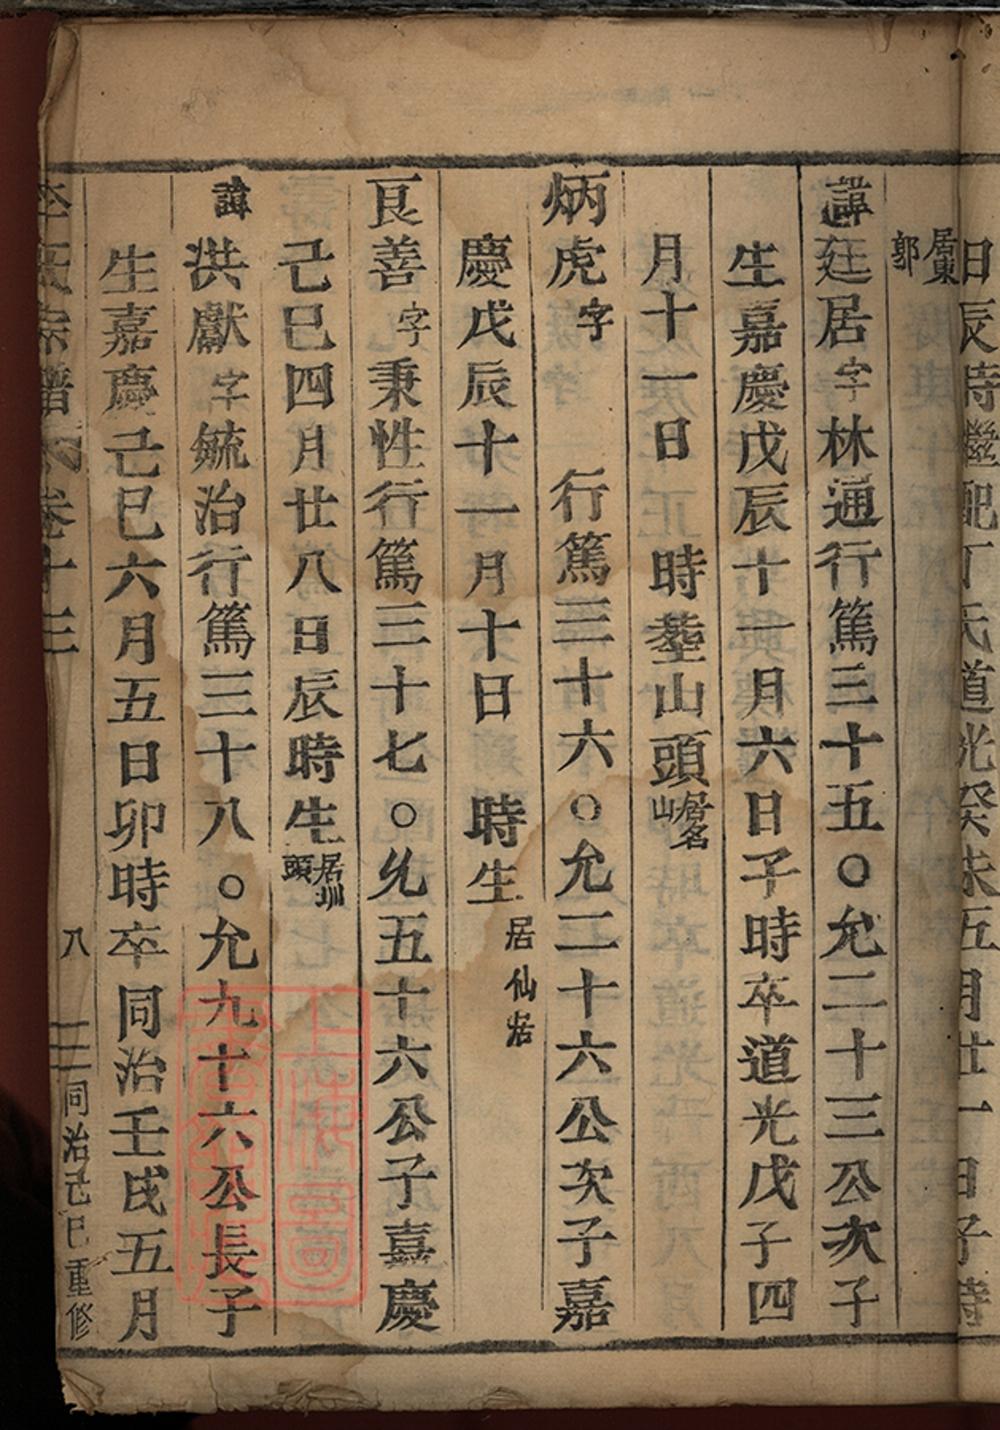 日辰時繼配丁氏道光癸未五月廿一日子時
居東郭
諱廷居字林通行篤三十五○允二十三公次子
生嘉慶戊辰十一月六日子時卒道光戊子四
月十一日 時塟山頭居名山
炳虎字 行篤三十六○允二十六公次子嘉
慶戊辰十一月十日 時生居仙居
艮善字秉性行篤三十七○允五十六公子嘉慶
己巳四月廿八日辰時生居圳頭
諱洪獻字毓治行篤三十八○允九十六公長子
生嘉慶己巳六月五日卯時卒同治壬戌五月
宗譜 卷十三 八 同治己巳重修